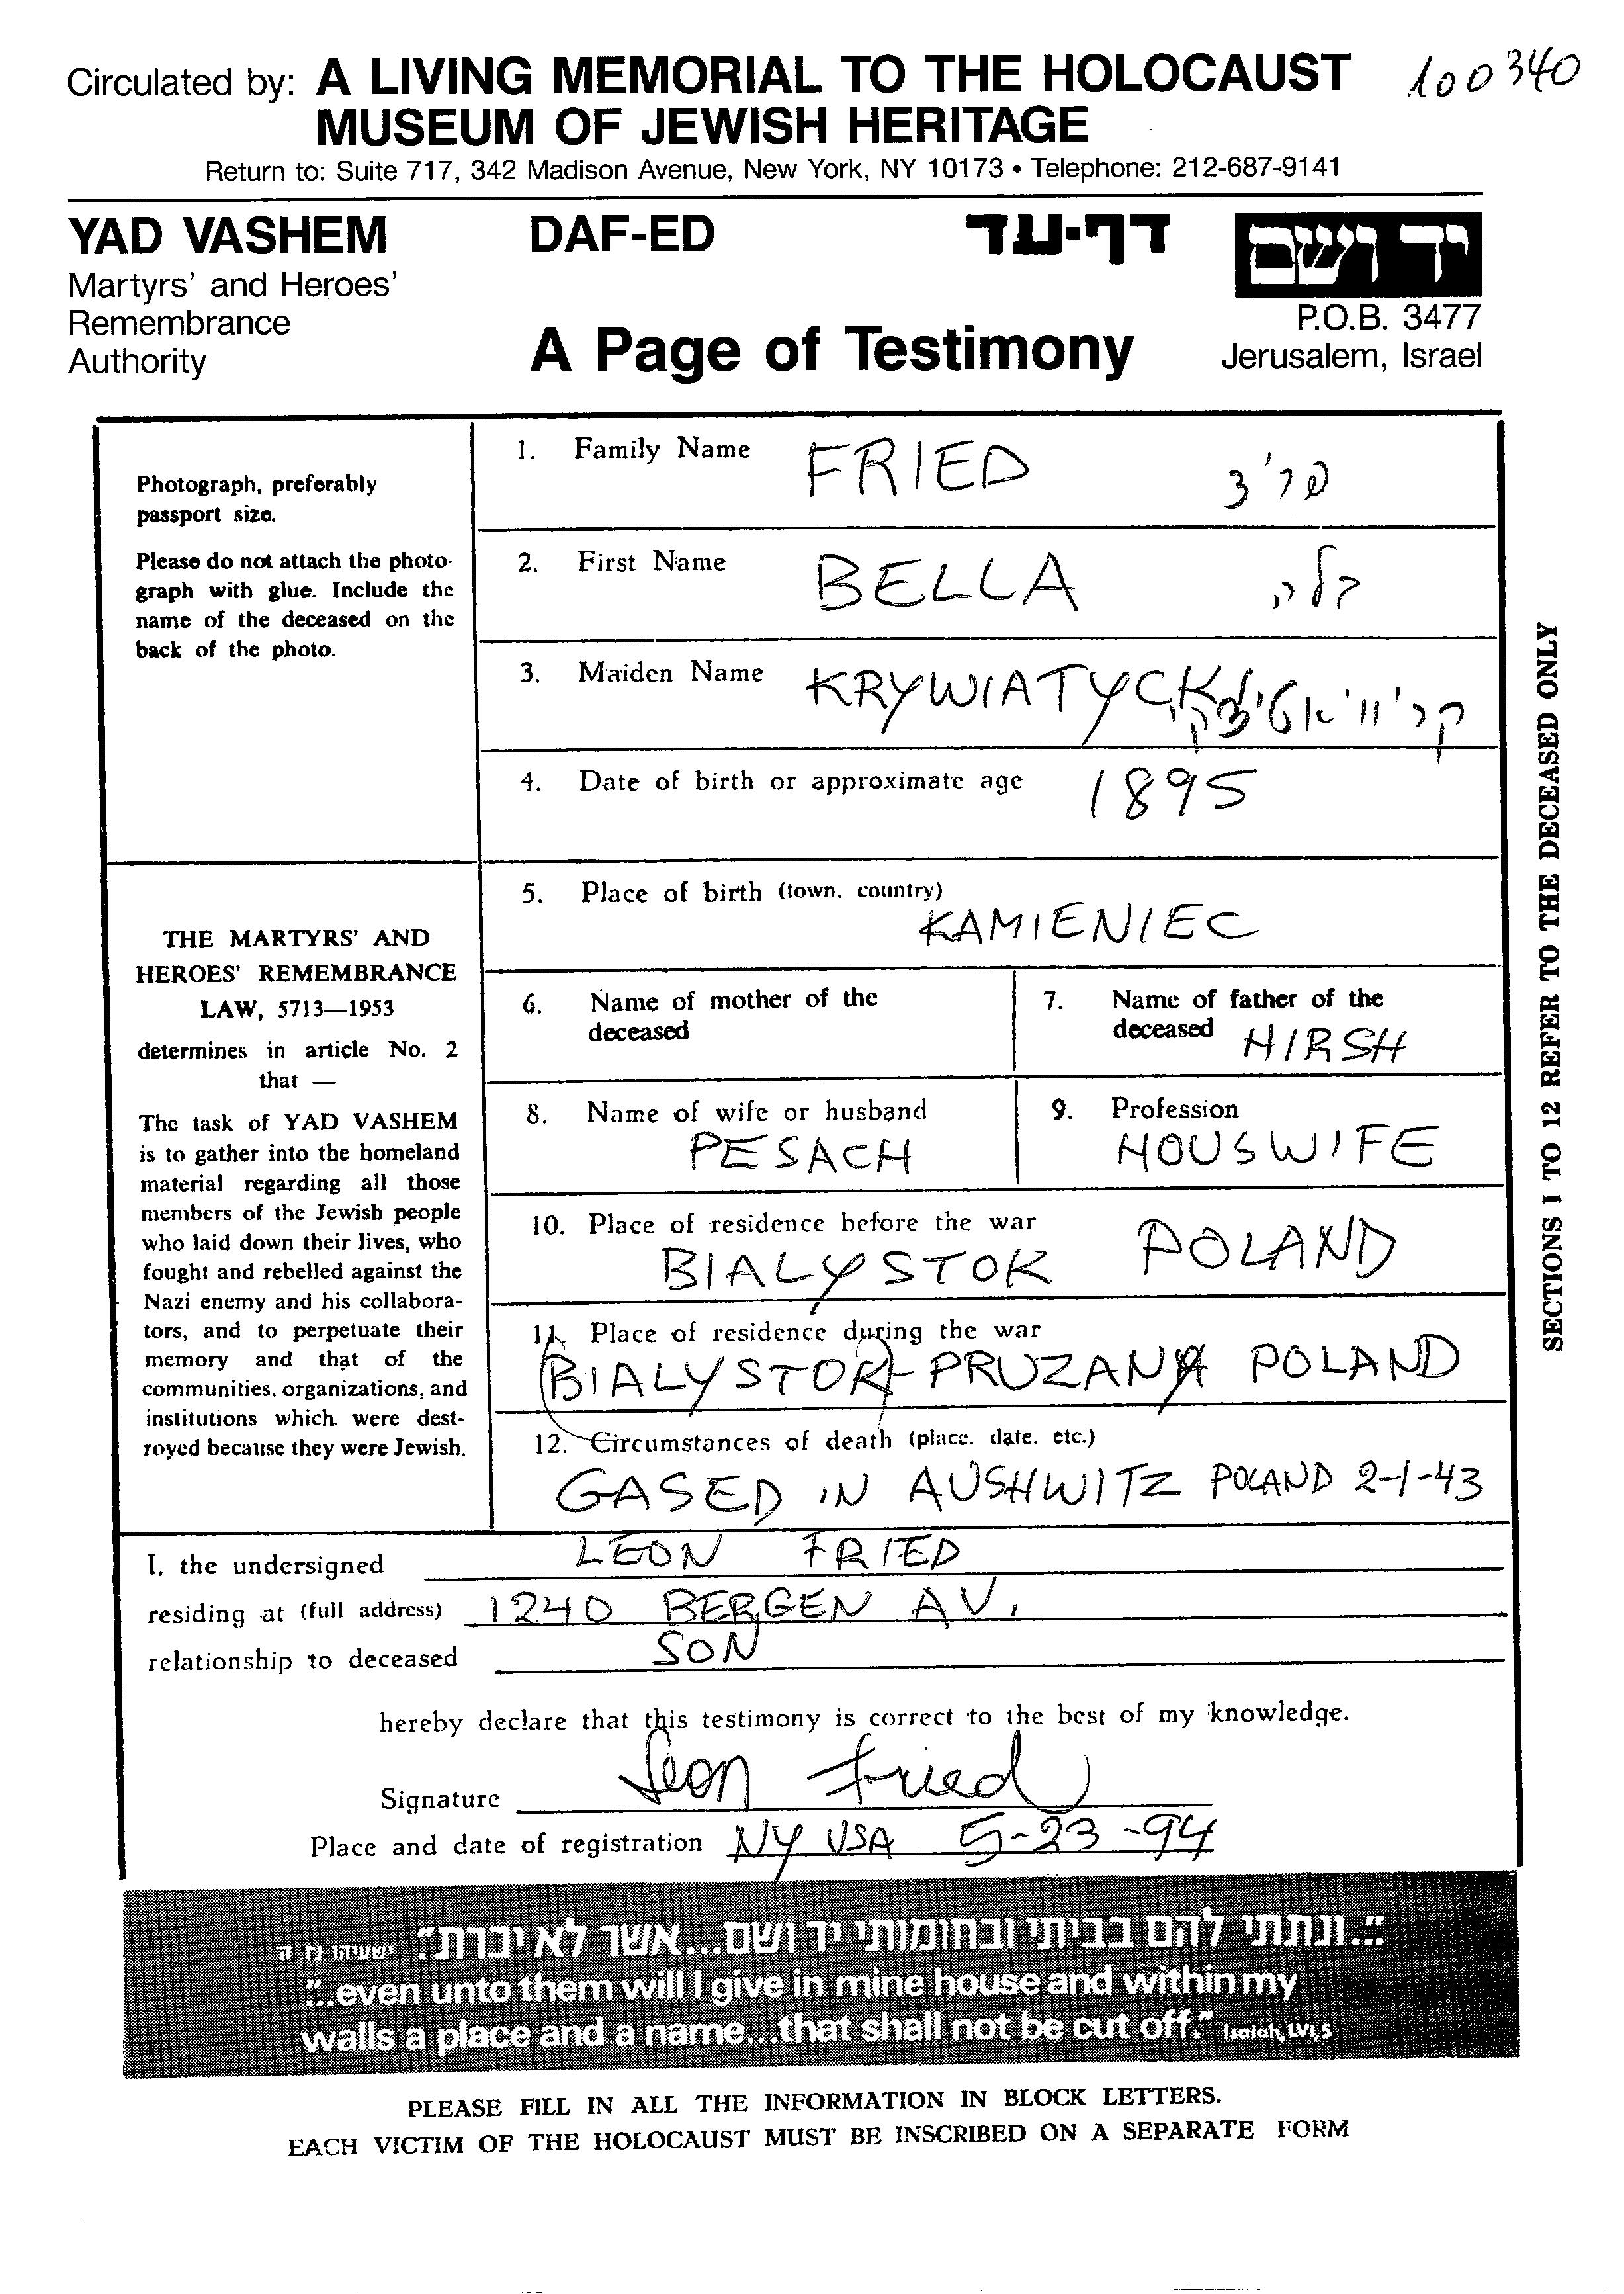 Circulated by: A LIVING MEMORIAL TO THE HOLOCAUST 100340
MUSEUM OF JEWISH HERITAGE
Return to: Suite 717, 342 Madison Avenue, New York, NY 10173 • Telephone: 212-687-9141
YAD VASHEM DAF-ED דף-עד יד ושם
Martyrs' and Heroes'
Remembrance
Authority
A Page of Testimony
P.O.B. 3477
Jerusalem, Israel
Photograph, preferably
passport size.
Please do not attach the photo-
graph with glue. Include the
name of the deceased on the
back of the photo.
THE MARTYRS' AND
HEROES' REMEMBRANCE
LAW, 5713—1953
determines in article No. 2
that —
The task of YAD VASHEM
is to gather into the homeland
material regarding all those
members of the Jewish people
who laid down their lives, who
fought and rebelled against the
Nazi enemy and his collabora-
tors, and to perpetuate their
memory and that of the
communities, organizations, and
institutions which were dest-
royed because they were Jewish.
1. Family Name FRIED פריד
2. First Name BELLA בלה
3. Maiden Name KRYWIATYCKI קריוויאטיצקי
4. Date of birth or approximate age 1895
5. Place of birth (town, country)
KAMIENIEC
6. Name of mother of the
deceased
7. Name of father of the
deceased HIRSH
8. Name of wife or husband
PESACH
9. Profession
HOUSWIFE
10. Place of residence before the war
BIALYSTOK POLAND
11. Place of residence during the war
(BIALYSTOK)-PRUZANA POLAND
12. Circumstances of death (place, date, etc.)
GASED IN AUSHWITZ POLAND 2-1-43
I, the undersigned LEON FRIED
residing at (full address) 1240 BERGEN AV.
relationship to deceased SON
hereby declare that this testimony is correct to the best of my knowledge.
Signature Leon Fried
Place and date of registration NY USA 5-23-94
"...ונתתי להם בביתי ובחומותי יד ושם...אשר לא יכרת" ישעיהו נו, ה
"...even unto them will I give in mine house and within my
walls a place and a name...that shall not be cut off." Isaiah, LVI, 5
PLEASE FILL IN ALL THE INFORMATION IN BLOCK LETTERS.
EACH VICTIM OF THE HOLOCAUST MUST BE INSCRIBED ON A SEPARATE FORM
SECTIONS 1 TO 12 REFER TO THE DECEASED ONLY